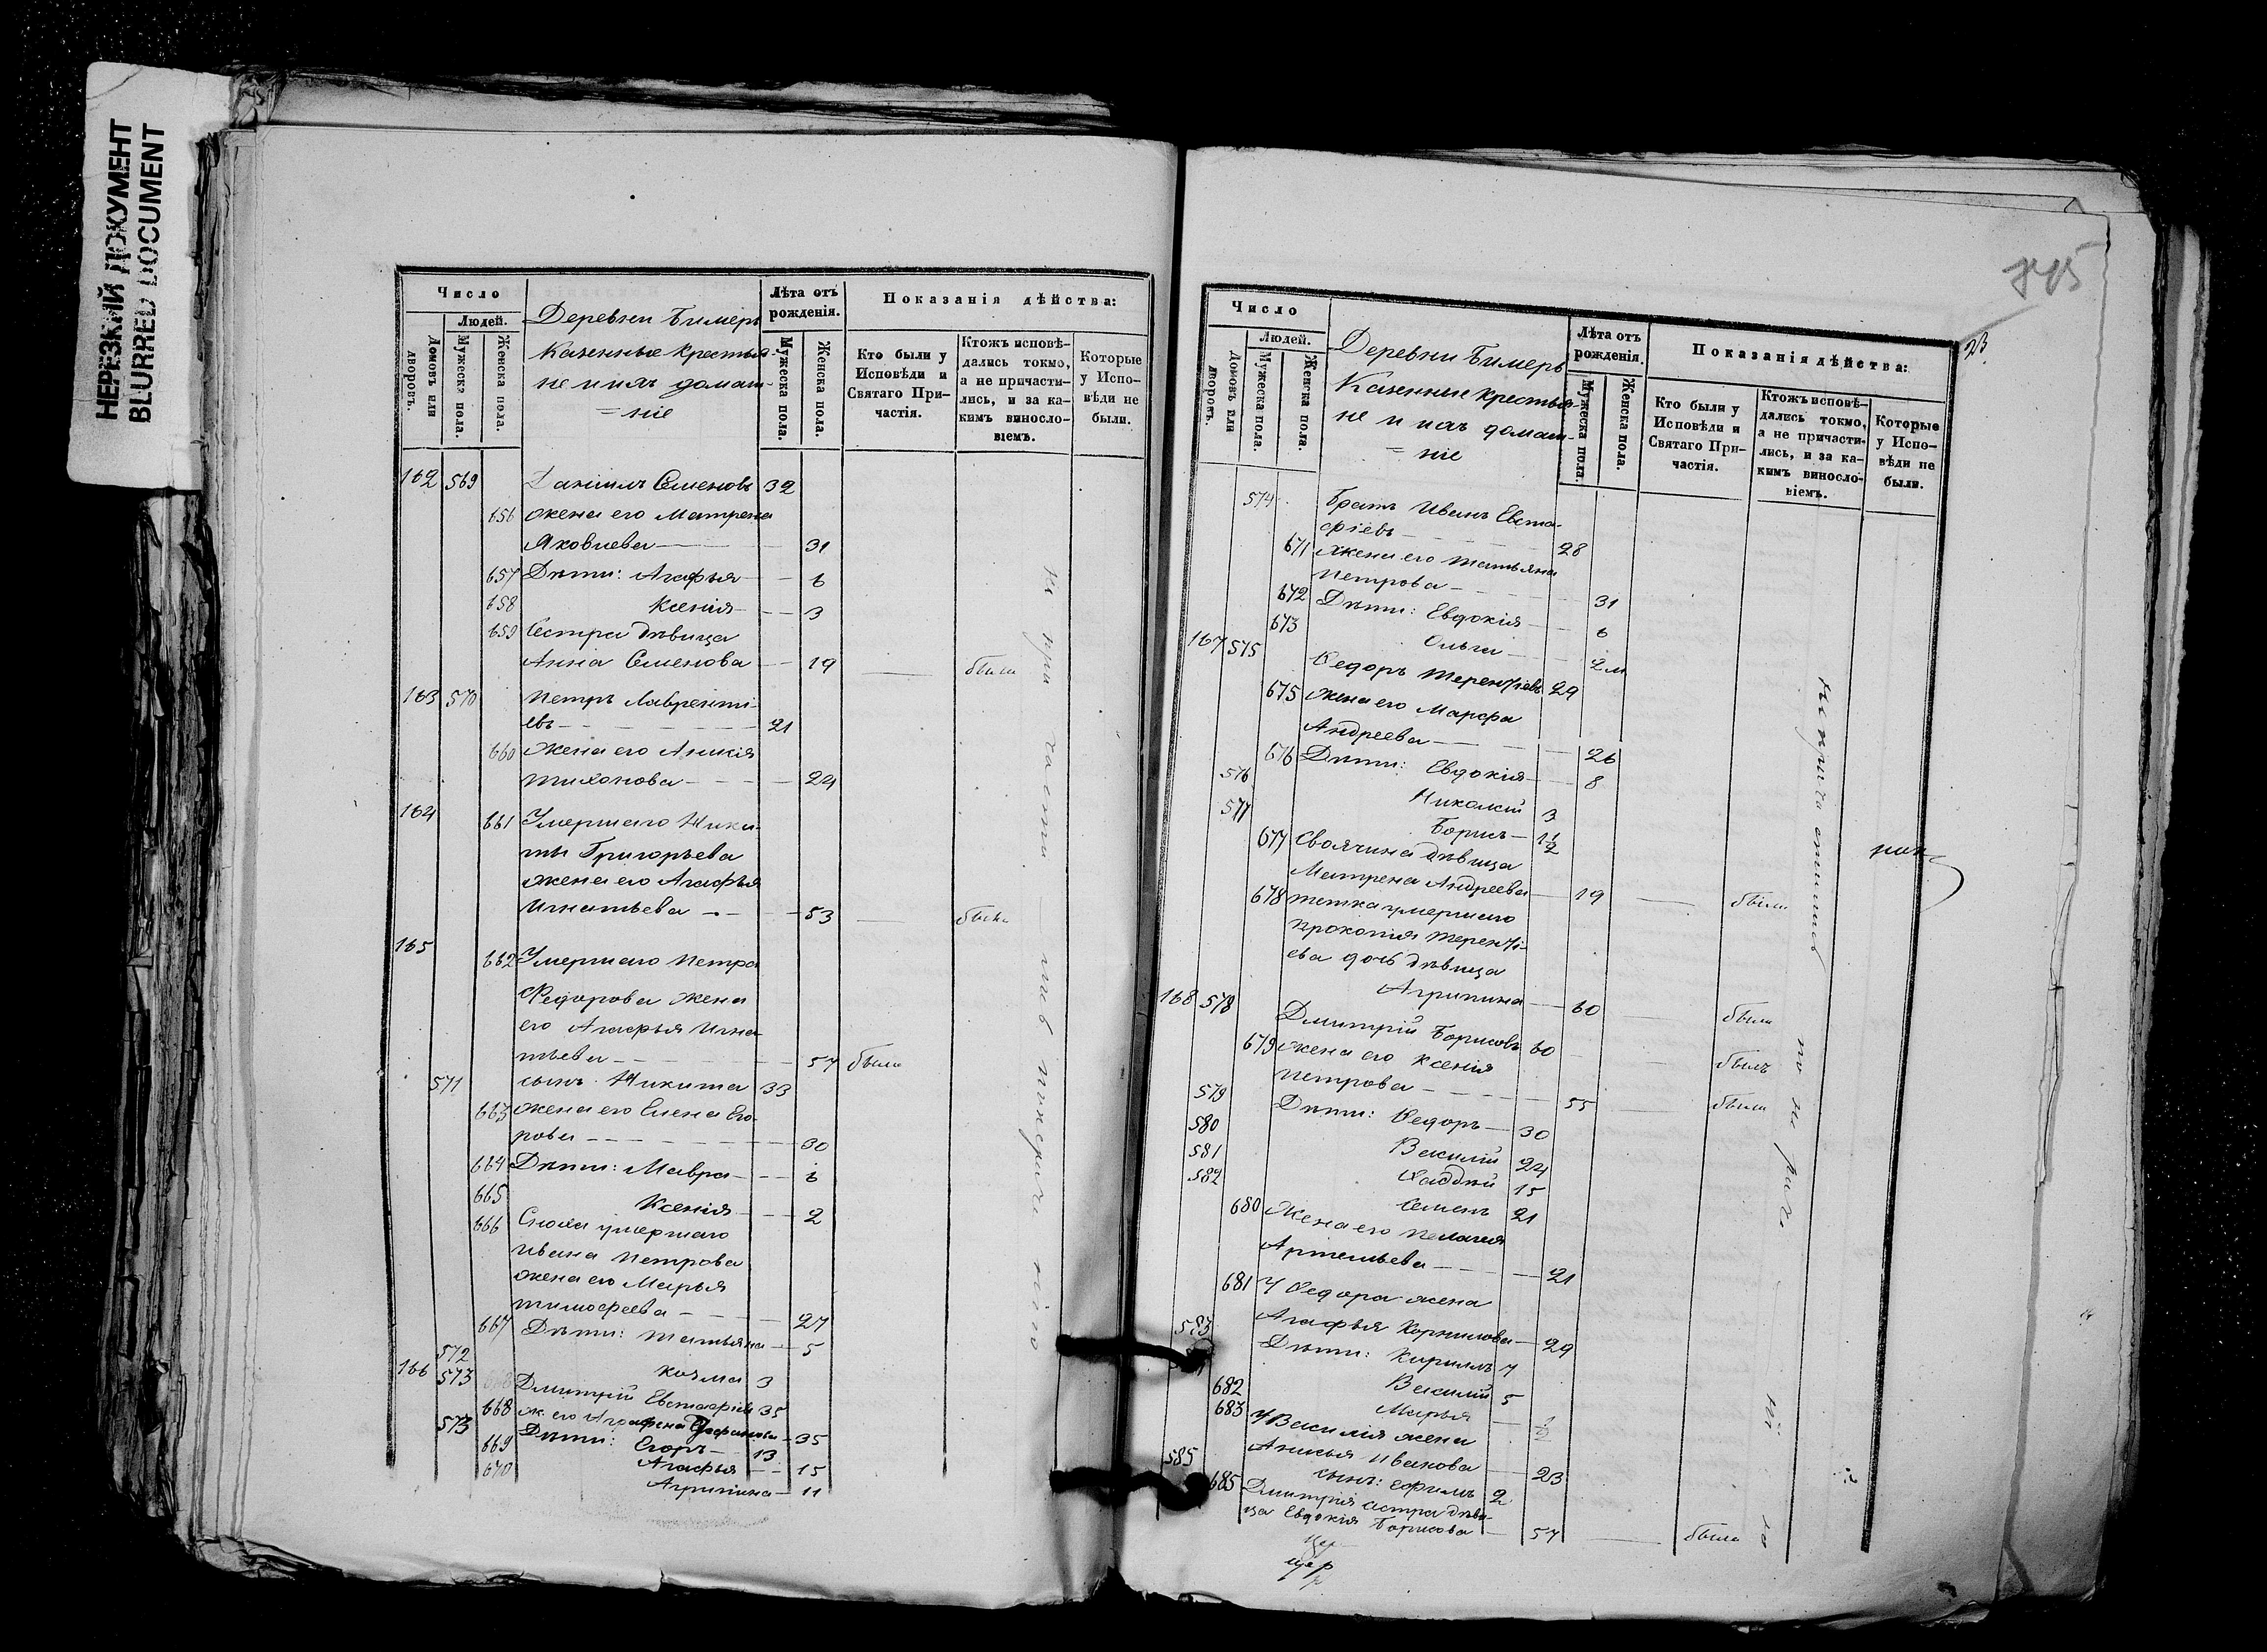 НЕРЕЗКИЙ ДОКУМЕНТ
BLURRED DOCUMENT
Число
Людей.
Домовъ или дворовъ.
Мужеск. пола.
Женска пола.
Деревни Бимеръ
Казенные крестья-
не и ихъ домаш-
=ніе
Лѣта отъ рожденія.
Мужеска пола.
Женска пола.
Показанія дѣйства:
Кто были у Исповѣди и Святаго При-частія.
Ктожъ исповѣ-дались токмо, а не причасти-лись, и за ка-кимъ винословіемъ.
Которые у Испо-вѣди не были.
162 569 Даніилъ Семеновъ 32
656 жена его Матрена
Яковлева 31
657 Дѣти: Агафья 6
658 Ксенія 3
659 Сестра дѣвица
Анна Семенова 19 была
163 570 Петръ Лаврентi-
евъ 21
660 жена его Аникія
Тихонова 24
164 661 Умершаго Ники-
ты Григорьева
жена его Агафья
Игнатьева 53 была
165 662 Умершаго Петра
Федорова жена
его Агафья Игна-
тьева 57 была
571 сынъ Никита 33
663 жена его Елена Его-
рова 30
664 Дѣти: Мавра 6
665 Ксенія 2
666 Сноха умершаго
Ивана Петрова
жена его Марья
Тимофеева 27
667 Дѣти: Татьяна 5
572 Козма 3
166 573 Дмитрій Евстафіевъ 35
668 ж. его Аграфена 35
573 Дѣти: Егоръ 13
669 Агафья 15
670 Агрипина 11
745
23.
Число
Людей.
Домовъ или дворовъ.
Мужеска пола.
Женска пола.
Деревни Бимеръ
Казенные крестья-
не и ихъ домаш-
=ніе
Лѣта отъ рожденія.
Мужеска пола.
Женска пола.
Показанія дѣйства:
Кто были у Исповѣди и Святаго При-частія.
Ктожъ исповѣ-дались токмо, а не причасти-лись, и за ка-кимъ винословіемъ.
Которые у Испо-вѣди не были.
574 Братъ Иванъ Евста-
фіевъ 28
671 жена его Татьяна
Петрова 31
672 Дѣти: Евдокія 6
673 Ольга 2 м
167 575 Федоръ Терентьевъ 29
675 жена его Марфа
Андреева 26
676 Дѣти: Евдокія 8
576 Николай 3
577 Борисъ 1½
677 Своячина дѣвица
Матрена Андреева 19 была
678 тетка умершаго
Прокопія Теренті-
ева дочь дѣвица
Агрипина 60 была
168 578 Дмитрій Борисовъ 60 былъ
679 жена его Ксенія
Петрова 55 была
579 Дѣти: Федоръ 30
580 Василій 24
581 Фаддей 15
582 Семенъ 21
680 жена его Пелагея
Артемьева 21
681 У Федора жена
Агафья Корнилова 29
583 Дѣти: Кирилъ 7
Василій 5
682 Марья ½
683 У Василія жена
Анисья Иванова 23
585 сынъ: Ефимъ 2
685 Дмитрія сестра дѣви-
ца Евдокія Борисова 57 была